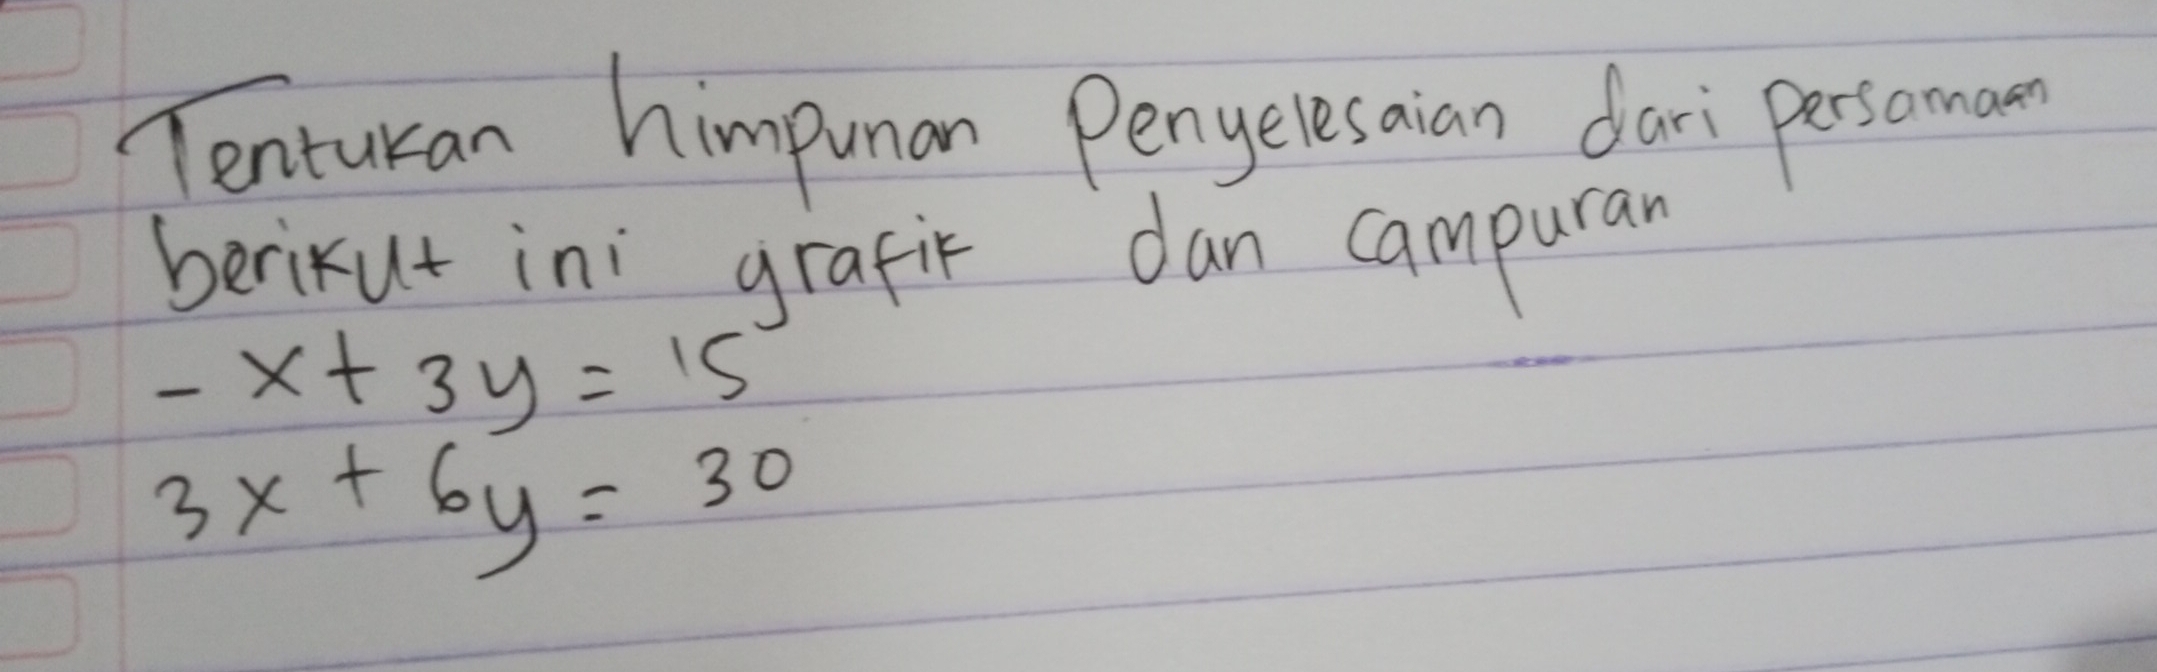 Tentukan himpunan Penyelesaian dari persamaan
berikut ini grafik dan campuran
- x + 3y = 15
3x + 6y = 30